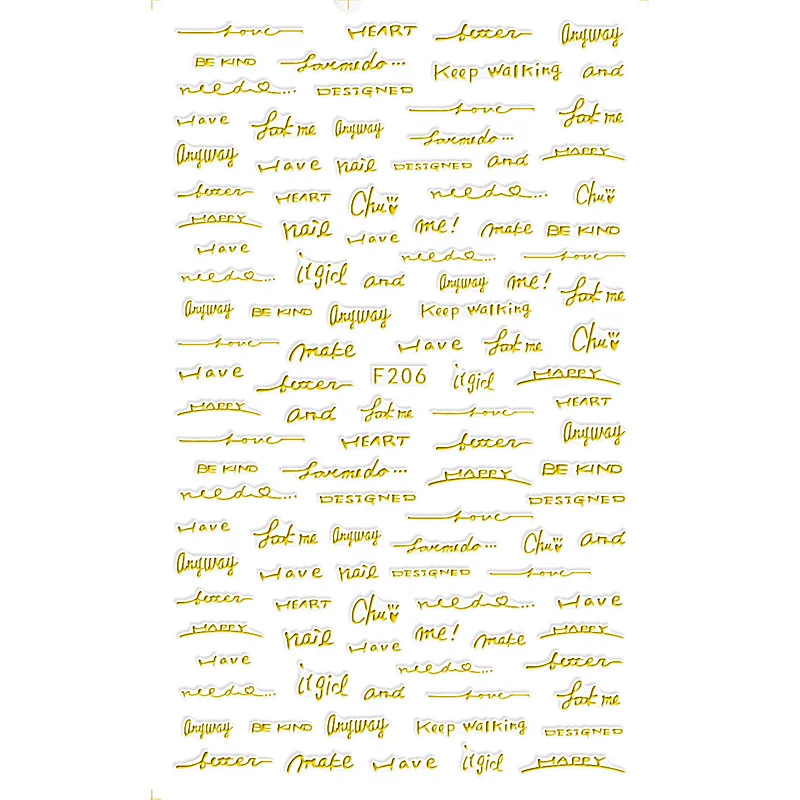 Love HEART better Anyway
BE KIND Lovemedo... Keep walking and
need... DESIGNED
Love
Have Look me Anyway Look me
Lovemedo...
Anyway Have nail DESIGNED and HAPPY
better HEART Chu need... Chu
HAPPY nail Have me! make BE KIND
Have need... Love
need... it girl and Anyway me! Look me
Anyway BE KIND Anyway Keep walking
Love make Have Look me Chu
Have better F206 it girl HAPPY
HAPPY and Look me Love HEART
Love HEART better Anyway
BE KIND Lovemedo... HAPPY BE KIND
need... DESIGNED DESIGNED
Love
Have Look me Anyway Lovemedo... Chu and
Anyway Have nail DESIGNED Love
better HEART Chu need... Have
HAPPY nail Have me! make HAPPY
Have need... better
need... it girl and Love Look me
Anyway BE KIND Anyway Keep walking DESIGNED
better make Have it girl HAPPY